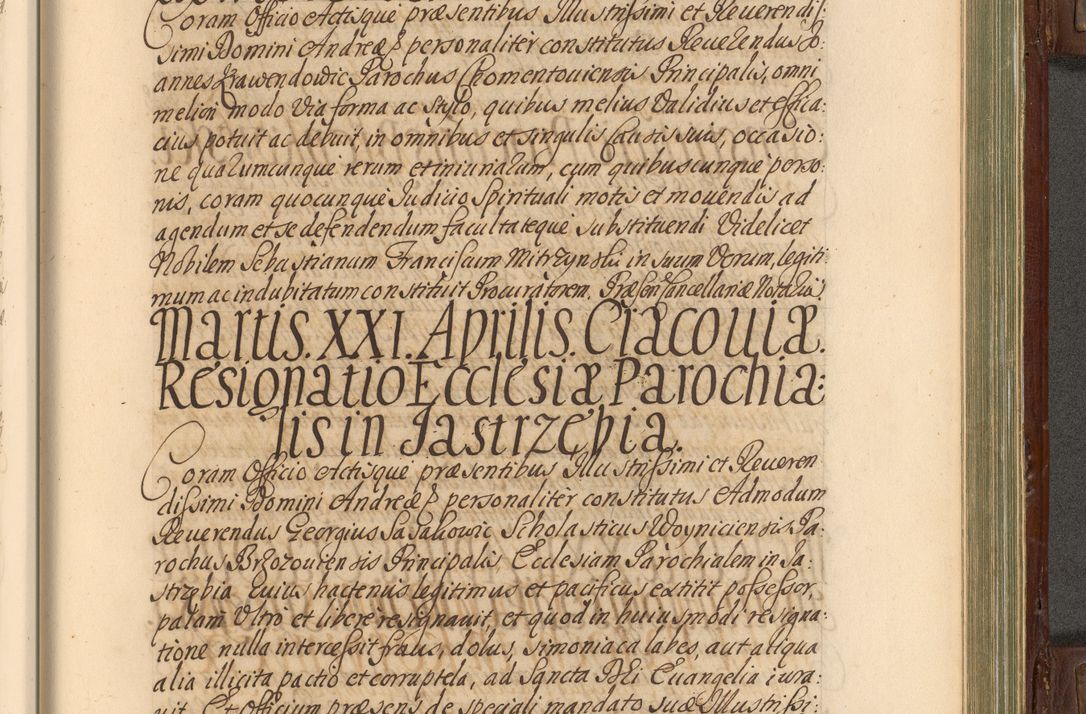 Coram Officio Actisque præsentibus Illustrissimi et Reverendis:
simi Domini Andreæ &c personaliter constitutus Reverendus Jo:
annes Krawendowic Parochus Chomentoviensis Principalis, omni
meliori modo Via forma ac Stylo, quibus melius Validius et effica:
cius potuit ac debuit, in omnibus et singulis Causis suis, occasio:
ne quarumcunque rerum et iniuriarum, cum quibuscunque perso:
nis, coram quocunque Judicio Spirituali motis et movendis ad
agendum et se defendendum facultateque substituendi Videlicet
Nobilem Sebastianum Francisum Mitrzynski in suum Verum, legiti
mum ac indubitatum constituit Procuratorem, Præsen: Cancellariæ Notariū.
Martis. XXI. Aprilis. Cracoviæ.
Resignatio Ecclesiæ Parochia:
lis in Jastrzębia.
Coram Officio Actisque præsentibus Illustrissimi et Reveren
dissimi Domini Andreæ &c personaliter constitutus Admodum
Reverendus Georgius Sasakowic Scholasticus Woyniciensis Pa:
rochus Brzozoviensis Principalis Ecclesiam Parochialem in Ja:
strzębia cuius hactenus legitimus et pacificus extitit possessor,
palam Ultro et libere resignavit, et quod in huiusmodi resigna:
tione nulla intercessit fraus, dolus, simoniaca labes, aut aliqua
alia illicita pactio et corruptela, ad Sancta Dei Evangelia iura:
vit. Et Officium præsens de speciali mandato suæ Illustrissi: